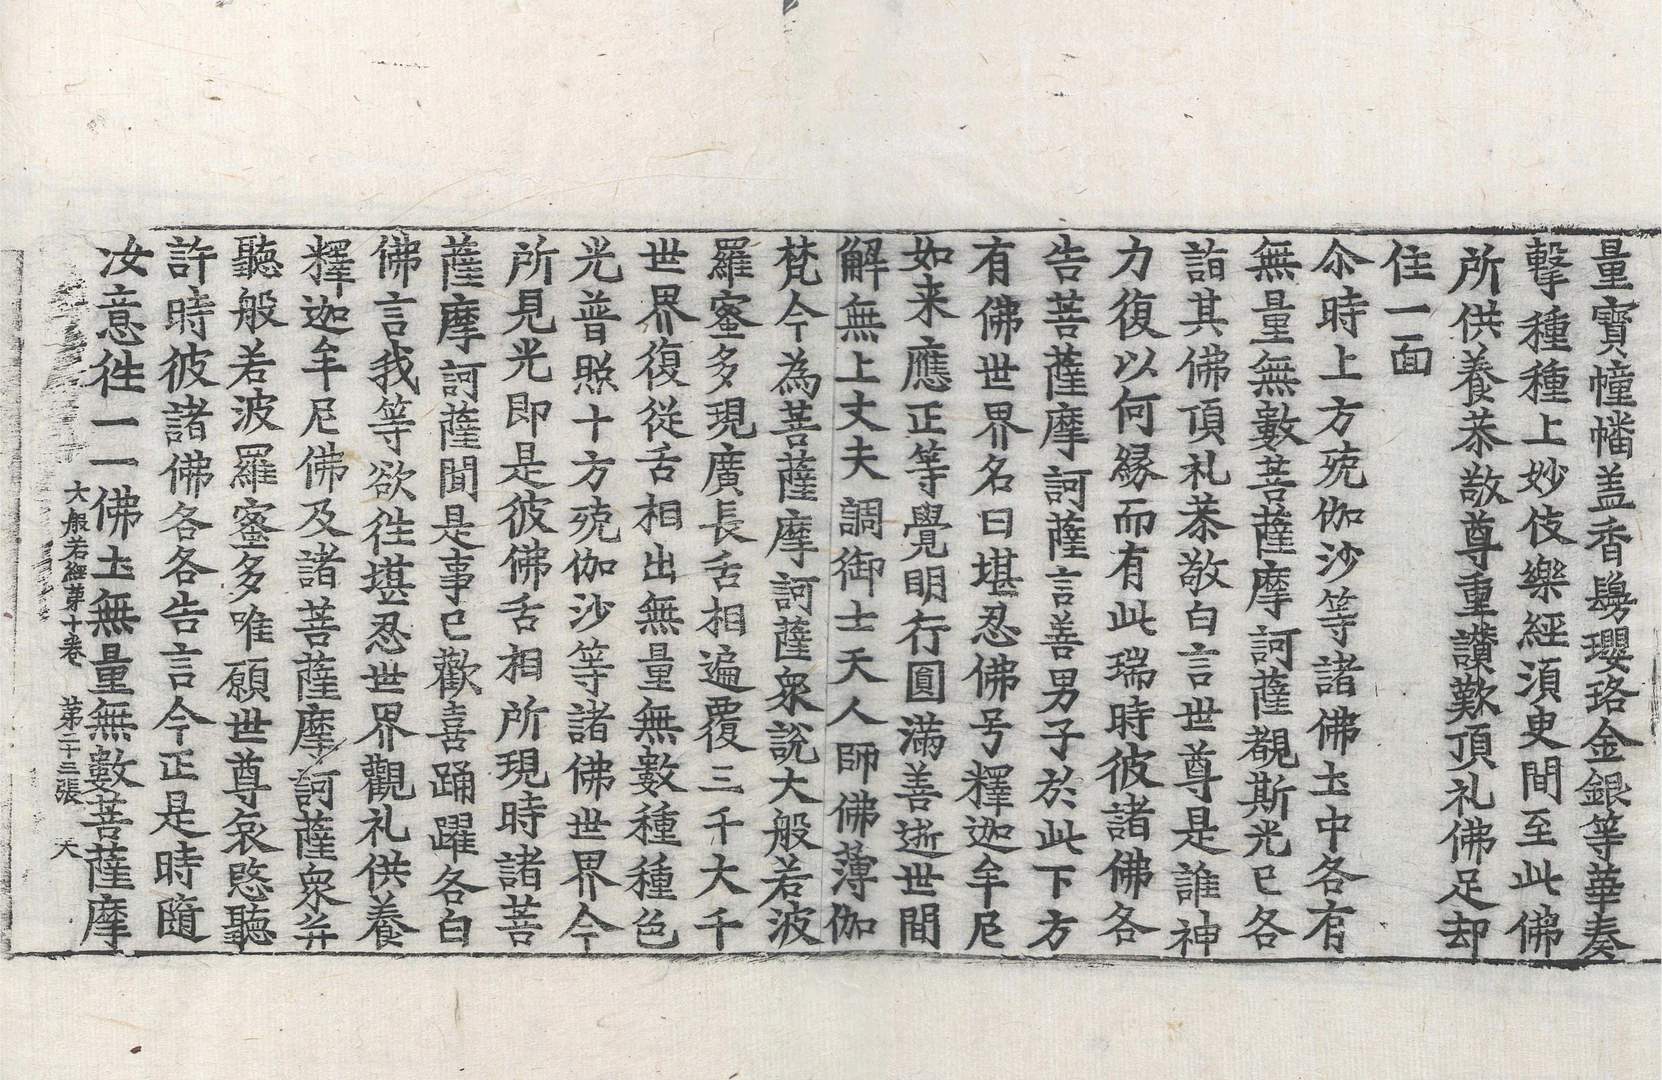 量寶幢幡盖香鬘瓔珞金銀等華奏
擊種種上妙伎樂經湏臾間至此佛
所供養恭敬尊重讃歎頂礼佛足却
住一面
尒時上方殑伽沙等諸佛圡中各有
無量無數菩薩摩訶薩覩斯光已各
詣其佛頂礼恭敬白言世尊是誰神
力復以何縁而有此瑞時彼諸佛各
告菩薩摩訶薩言善男子於此下方
有佛世界名曰堪忍佛号釋迦牟尼
如来應正等覺明行圓滿善逝世間
解無上丈夫調御士天人師佛薄伽
梵今為菩薩摩訶薩衆說大般若波
羅蜜多現廣長舌相遍覆三千大千
世界復從舌相出無量無數種種色
光普照十方殑伽沙等諸佛世界今
所見光即是彼佛舌相所現時諸菩
薩摩訶薩聞是事已歡喜踊躍各白
佛言我等欲徃堪忍世界觀礼供養
釋迦牟尼佛及諸菩薩摩訶薩衆并
聽般若波羅蜜多唯願世尊哀愍聽
許時彼諸佛各各告言今正是時隨
汝意徃一一佛圡無量無數菩薩摩
大般若經苐十卷 苐二十三張 天